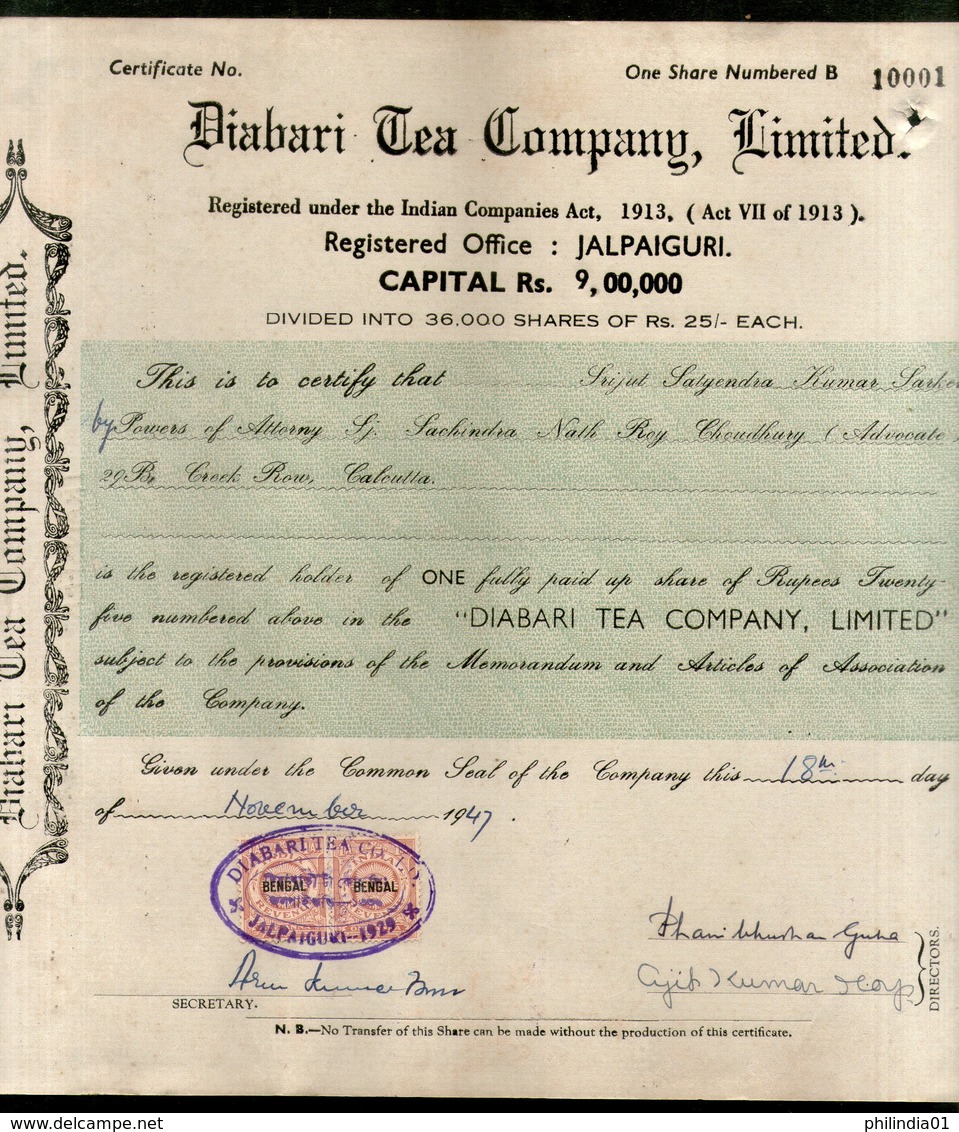 Certificate No.
One Share Numbered B 10001
Diabari Tea Company, Limited.
Registered under the Indian Companies Act, 1913, ( Act VII of 1913 ).
Registered Office : JALPAIGURI.
CAPITAL Rs. 9,00,000
DIVIDED INTO 36,000 SHARES OF Rs. 25/- EACH.
This is to certify that Srijut Satyendra Kumar Sarker
by Powers of Attorny Sj. Sachindra Nath Roy Choudhury ( Advocate )
29B, Creek Row, Calcutta.
is the registered holder of ONE fully paid up share of Rupees Twenty-
five numbered above in the "DIABARI TEA COMPANY, LIMITED"
subject to the provisions of the Memorandum and Articles of Association
of the Company.
Given under the Common Seal of the Company this 18th day
of November 1947.
DIABARI TEA CO. LD.
INDIA
BENGAL BENGAL
REVENUE REVENUE
JALPAIGURI--1929
Phani bhushan Guha
Ajit Kumar
Arun Kumar
SECRETARY.
DIRECTORS.
N. B.—No Transfer of this Share can be made without the production of this certificate.
Diabari Tea Company, Limited.
philindia01